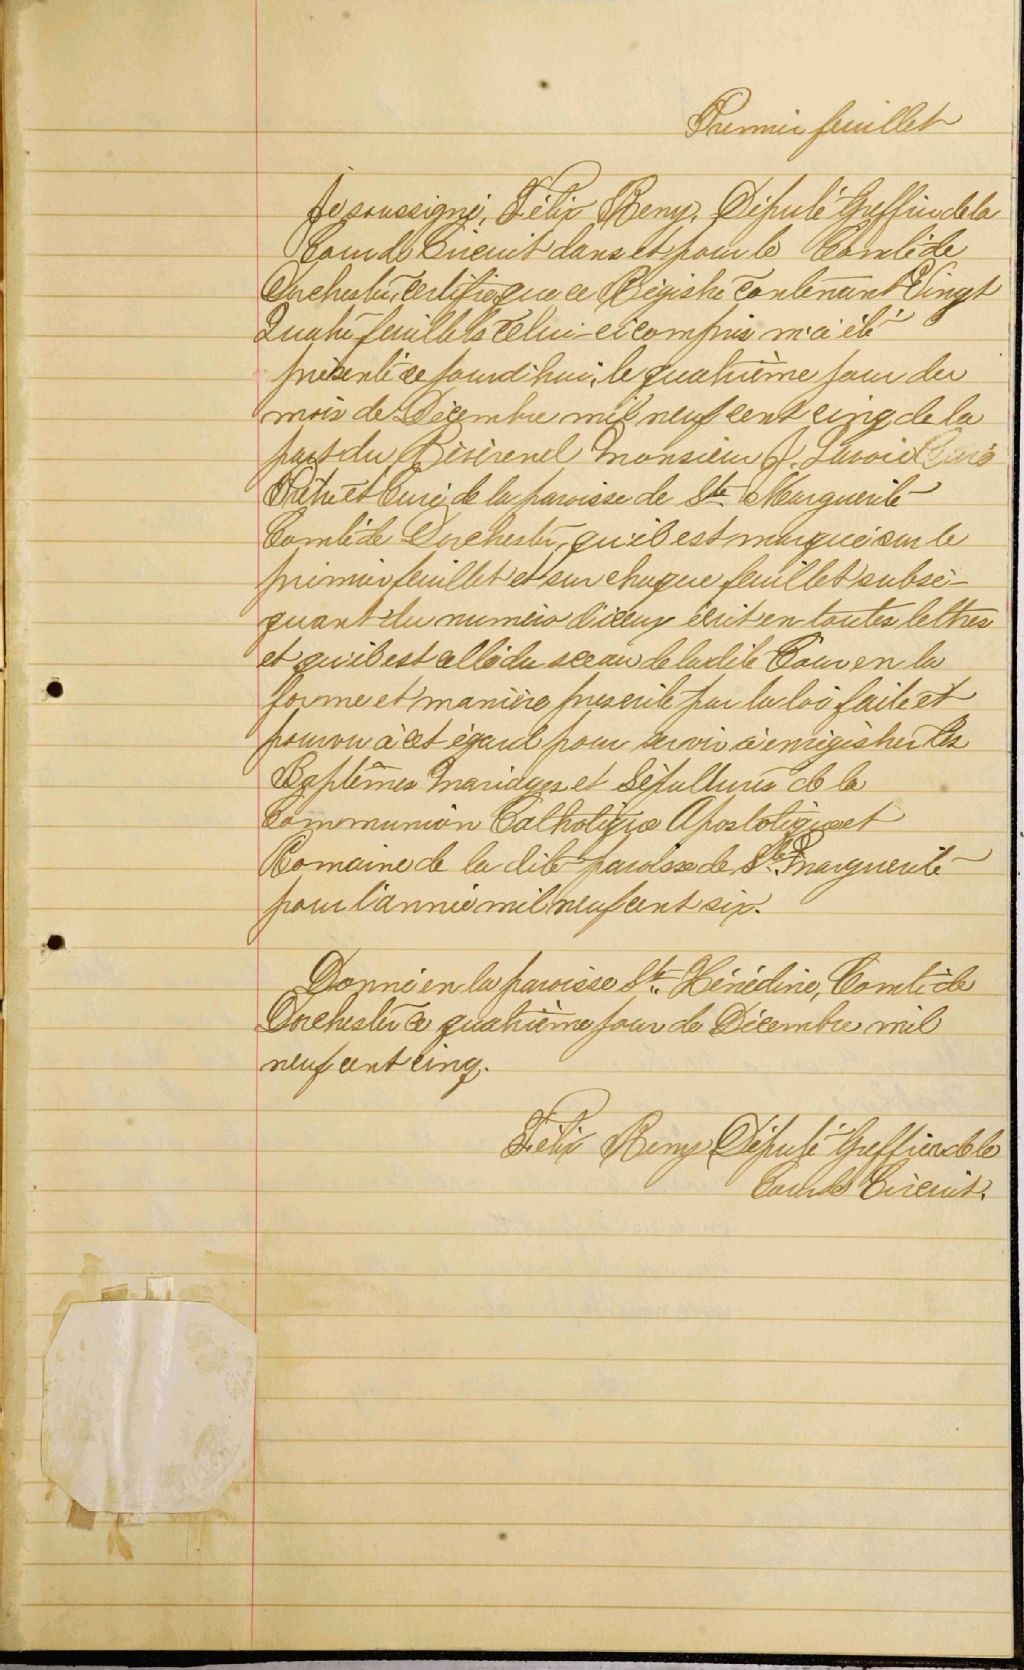 Premier feuillet
Je soussigné, Félix Remy, Député Greffier de la
Cour de Circuit dans et pour le Comté de
Dorchester, certifie que ce Régistre contenant Vingt
Quatre feuillets celui-ci compris m'a été
présenté ce jourd'hui, le quatrième jour du
mois de Décembre mil neuf cent cinq de la
part du Révérend Monsieur J. Lavoie Curé
Prêtre et Curé de la paroisse de Ste Marguerite
Comté de Dorchester, qu'il est marqué sur le
premier feuillet et sur chaque feuillet subsé-
quant du numéro d'iceux écrit en toutes lettres
et qu'il est scellé du sceau de la dite Cour en la
forme et manière prescrite par la loi faite et
pourvu à cet égard pour servir à enrégistrer les
Baptêmes Mariages et Sépultures de la
Communion Catholique Apostolique et
Romaine de la dite paroisse de Ste Marguerite
pour l'année mil neuf cent six.
Donné en la paroisse Ste Hénédine, Comté de
Dorchester ce quatrième jour de Décembre mil
neuf cent cinq.
Félix Remy Député Greffier de la
Cour de Circuit.